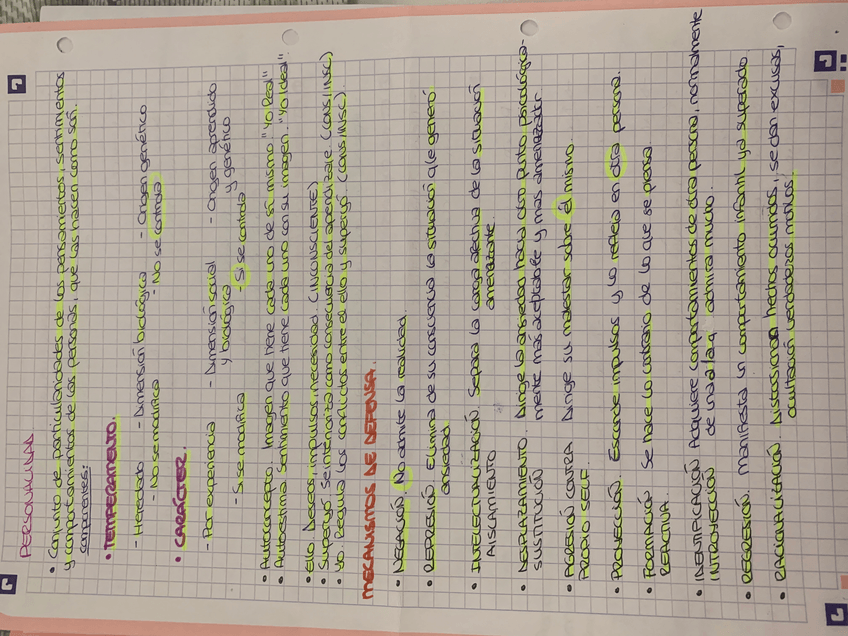 PERSONALIDAD
• Conjunto de particularidades de los pensamientos, sentimientos
y comportamientos de las personas, que las hacen como son.
componentes:
• TEMPERAMENTO.
- Heredado - Dimensión biológica - Origen genético
- No se modifica - No se controla
• CARÁCTER.
- Por experiencia - Dimensión social - Origen aprendido
y biológica y genético
- Si se modifica - Si se controla
• Autoconcepto. Imagen que tiene cada uno de si mismo "Yo Real"
• Autoestima. Sentimiento que tiene cada uno con su imagen. "Yo Ideal".
• Ello. Deseos, impulsos, necesidad. (INCONSCIENTE)
• Superyó. Se interioriza como consecuencia del aprendizaje (CONS/INSC)
• Yo. Regula los conflictos entre el ello y superyó (CONS/INSC)
MECANISMOS DE DEFENSA.
• NEGACIÓN. No admite la realidad.
• REPRESIÓN. Elimina de su consciencia la situación que generó
ansiedad.
• INTELECTUALIZACIÓN. Separa la carga afectiva de la situación
AISLAMIENTO amenazante.
• DESPLAZAMIENTO. Dirige la ansiedad hacia otro punto, psicológica-
SUSTITUCIÓN mente más aceptable y mas amenazador.
• AGRESIÓN CONTRA Dirige su malestar sobre él mismo.
PROPIO SELF.
• PROYECCIÓN. Esconde impulsos y lo refleja en otra persona.
• FORMACIÓN Se hace lo contrario de lo que se piensa
REACTIVA.
• IDENTIFICACIÓN Adquiere comportamientos de otra persona, normalmente
INTROYECCIÓN de una a la q admira mucho.
• REGRESIÓN. Manifiesta un comportamiento infantil ya superado.
• RACIONALIZACIÓN. Distorsionan hechos ocurridos, se dan excusas,
ocultación verdaderos motivos.